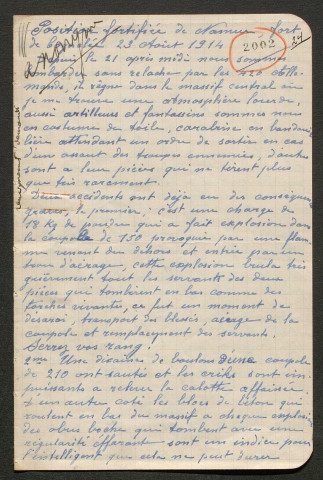 Position fortifiée de Namur, fort
de 23 Août 1914
2002
24
le 21 après midi nous sommes
bombarder sans relache par les 420 allle-
mands, il règne dans le massif central ou
je me trouve une atmosphère lourde,
aussi artilleurs et fantassins sommes nous
en costume de toile, carabine en bandou-
lière attendant un ordre de sortir en cas
d'un assaut des troupes ennemies, d'autre
sont a leur pièces qui ne tirent plus
que très rarement.
Deux accidents ont déjà eu des conséquen
graves, le premier; c'est une charge de
18 Kg de poudre qui a fait explosion dans
la coupole de 150 provoqué par une flam
me venant du dehors et entrée par un
trou d'aérage, cette explosion brula très
grièvement tout les servants des deux
pièces qui tombèrent en bas comme des
torches vivantes, ce fut un moment de
désaroi, transport des blessés, aérage de la
coupole et remplacement des servants.
Serrez vos rang!
2me Une dizaine de boulons d'une coupole
de 210 ont sautés et les criks sont im-
puissants a relever la calotte affaissée
d'un autre coté les blocs de béton qui
roulent en bas du massif a chaque explosi
des obus boche qui tombent avec une
régularité effarante sont un indice pour
l'intelligent que cela ne peut durer